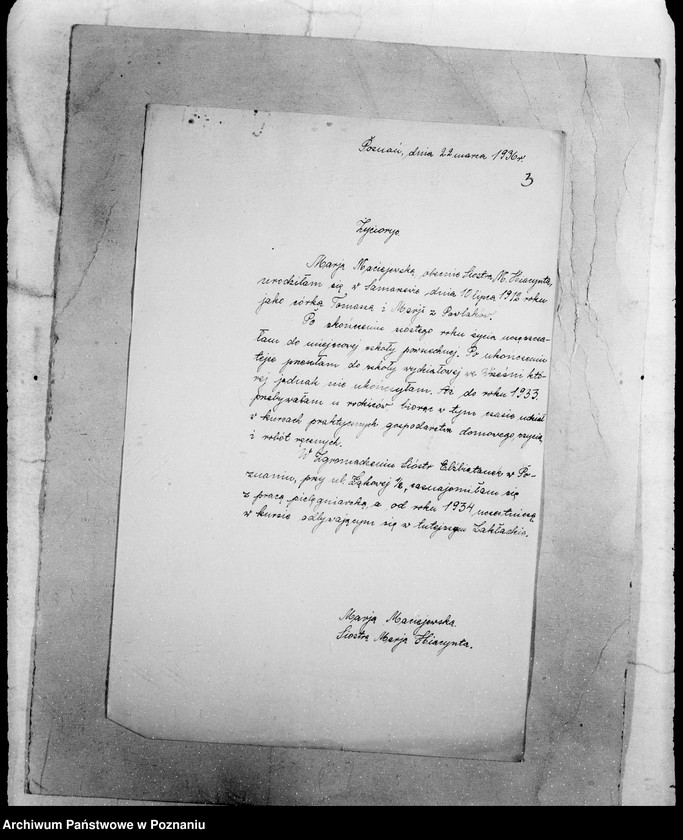 Poznań, dnia 22 marca 1936 r.
3
Życiorys.
Marja Maciejewska, obecnie Siostra M. Hiacynta,
urodziłam się w dnia 10 lipca 1912 roku
jako córka Tomasza i Marji z Pawlaków.
Po skończeniu szóstego roku życia uczęszcza-
łam do miejscowej szkoły powszechnej. Po ukończeniu
tejże przeszłam do szkoły wydziałowej we Wrześni któ-
rej jednak nie ukończyłam. Aż do roku 1933
przebywałam u rodziców biorąc w tym czasie udział
w kursach praktycznych gospodarstwa domowego, szycia
i robót ręcznych.
W Zgromadzeniu Sióstr Elżbietanek w Po-
znaniu, przy ul. Łąkowej 1/2, zaznajomiłam się
z pracą pielęgniarską, a od roku 1934 uczestniczę
w kursie odbywającym się w tutejszym Zakładzie.
Marja Maciejewska.
Siostra Marja Hiacynta.
Archiwum Państwowe w Poznaniu